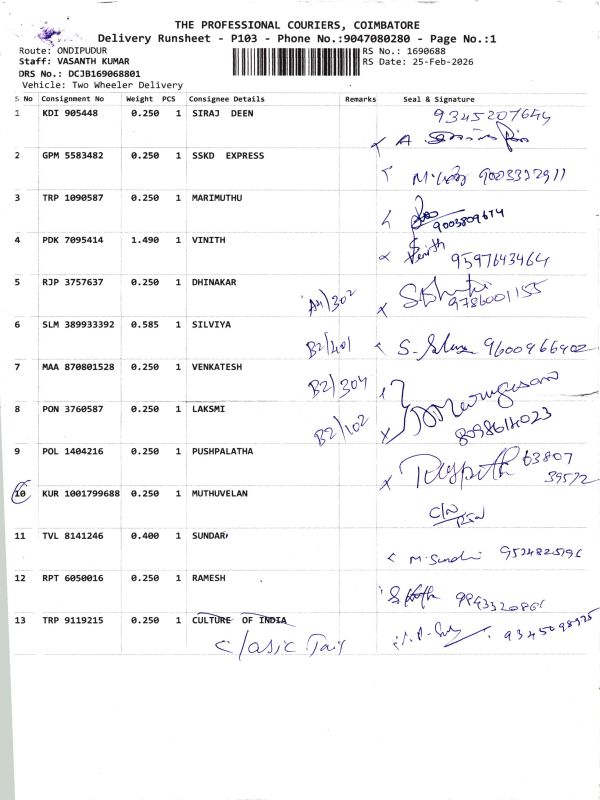 THE PROFESSIONAL COURIERS, COIMBATORE
Delivery Runsheet - P103 - Phone No.:9047080280 - Page No.:1
Route: ONDIPUDUR
RS No.: 1690688
Staff: VASANTH KUMAR
RS Date: 25-Feb-2026
DRS No.: DCJB169068801
Vehicle: Two Wheeler Delivery
S No Consignment No Weight PCS Consignee Details Remarks Seal & Signature
1 KDI 905448 0.250 1 SIRAJ DEEN 9345207644
2 GPM 5583482 0.250 1 SSKD EXPRESS
3 TRP 1090587 0.250 1 MARIMUTHU 9003809674
4 PDK 7095414 1.490 1 VINITH 9597643464
5 RJP 3757637 0.250 1 DHINAKAR A4/302 9786001155
6 SLM 389933392 0.585 1 SILVIYA B2/401 9600966902
7 MAA 870801528 0.250 1 VENKATESH B2/304
8 PON 3760587 0.250 1 LAKSMI B2/102 8098614023
9 POL 1404216 0.250 1 PUSHPALATHA 63807
39572
10 KUR 1001799688 0.250 1 MUTHUVELAN
11 TVL 8141246 0.400 1 SUNDAR 9524825196
12 RPT 6050016 0.250 1 RAMESH
13 TRP 9119215 0.250 1 CULTURE OF INDIA